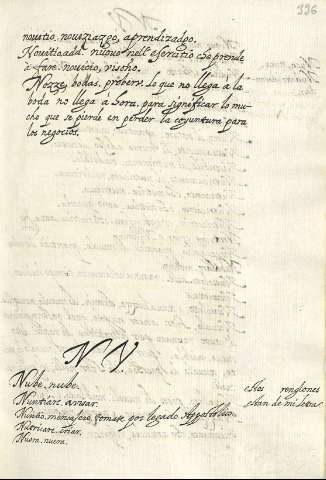 336
novatio, noviziazgo, aprendizadgo.
Novitio, add. nuovo nell' esercitio che prende
à fare. novicio, visoño.
Nozze, bodas, proberv. lo que no llega à la
boda no llega à hora, para significar lo mu-
cho que se pierde en perder la coyuntura para
los negocios.
N V.
Nube. nube.
Nuntiare. avisar.
Nuntio. mensajero, tomase por legado Appostolico
Nutricare. criar.
Nuora. nuera.
estos renglones
estan de mi letra